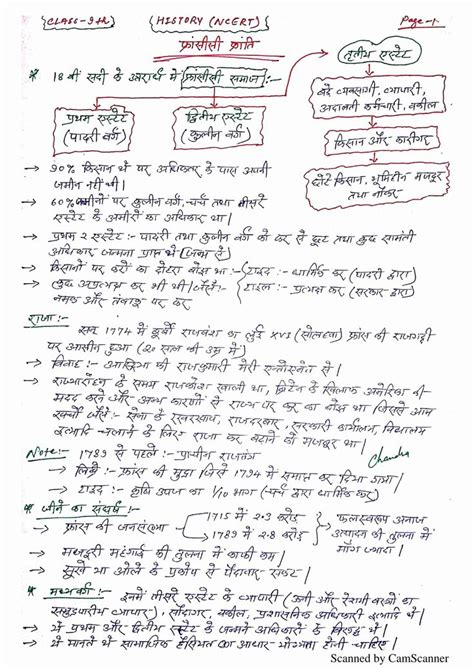 CLASS-9th
HISTORY (NCERT)
Page-1
फ्रांसीसी क्रांति
* 18 वीं सदी के आरंभ में फ्रांसीसी समाज :-
प्रथम एस्टेट
(पादरी वर्ग)
द्वितीय एस्टेट
(कुलीन वर्ग)
तृतीय एस्टेट
बड़े व्यवसायी, व्यापारी,
अदालती कर्मचारी, वकील
किसान और कारीगर
छोटे किसान, भूमिहीन मजदूर
तथा नौकर
→ 90% किसान थे पर अधिकतर के पास अपनी
जमीन नहीं थी।
→ 60% जमीनों पर कुलीन वर्ग, चर्च तथा तीसरे
एस्टेट के अमीरों का अधिकार था।
→ प्रथम 2 एस्टेट :- पादरी तथा कुलीन वर्ग को कर से छूट तथा कुछ सामंती
अधिकार जन्मना प्राप्त थे (जन्म से)
→ किसानों पर करों का दोहरा बोझ था :- टाइद :- धार्मिक कर (पादरी द्वारा)
→ कुछ अप्रत्यक्ष कर भी थे। जैसे :- टाइल :- प्रत्यक्ष कर (सरकार द्वारा)
नमक और तंबाकू पर कर
राजा :-
सन् 1774 में बूर्बों राजवंश का लुई XVI (सोलहवां) फ्रांस की राजगद्दी
पर आसीन हुआ (20 साल की उम्र में)
→ विवाह :- आस्ट्रिया की राजकुमारी मेरी एन्तोएनेत से।
→ राज्यारोहण के समय राजकोष खाली था, ब्रिटेन के खिलाफ अमेरिका की
मदद करने और अन्य कारणों से राज्य पर कर का बोझ था (जिससे आम
खर्चों जैसे :- सेना के रखरखाव, राजदरबार, सरकारी कार्यालय, विद्यालय
इत्यादि चलाने के लिए राजा कर बढ़ाने को मजबूर था।
Note :- 1789 से पहले :- प्राचीन राजतंत्र
Chandra
→ लिव्रे :- फ्रांस की मुद्रा जिसे 1794 में समाप्त कर दिया गया।
→ टाइद :- कृषि उपज का 1/10 भाग (चर्च द्वारा धार्मिक कर)
* जीने का संघर्ष :-
→ फ्रांस की जनसंख्या
1715 में 2.3 करोड़
1789 में 2.8 करोड़
फलस्वरूप अनाज
उत्पादन की तुलना में
मांग ज्यादा।
→ मजदूरी महंगाई की तुलना में काफी कम।
→ सूखे या ओले के प्रकोप से पैदावार
* मध्यवर्ग :- इनमें तीसरे एस्टेट के व्यापारी (ऊनी और रेशमी वस्त्रों का
समुद्रपारीय व्यापार), सौदागर, वकील, प्रशासनिक अधिकारी इत्यादि थे।
→ ये प्रथम और द्वितीय एस्टेट के जन्मना अधिकारों के विरुद्ध थे।
→ ये मानते थे सामाजिक हैसियत का आधार योग्यता होनी चाहिए।
Scanned by CamScanner